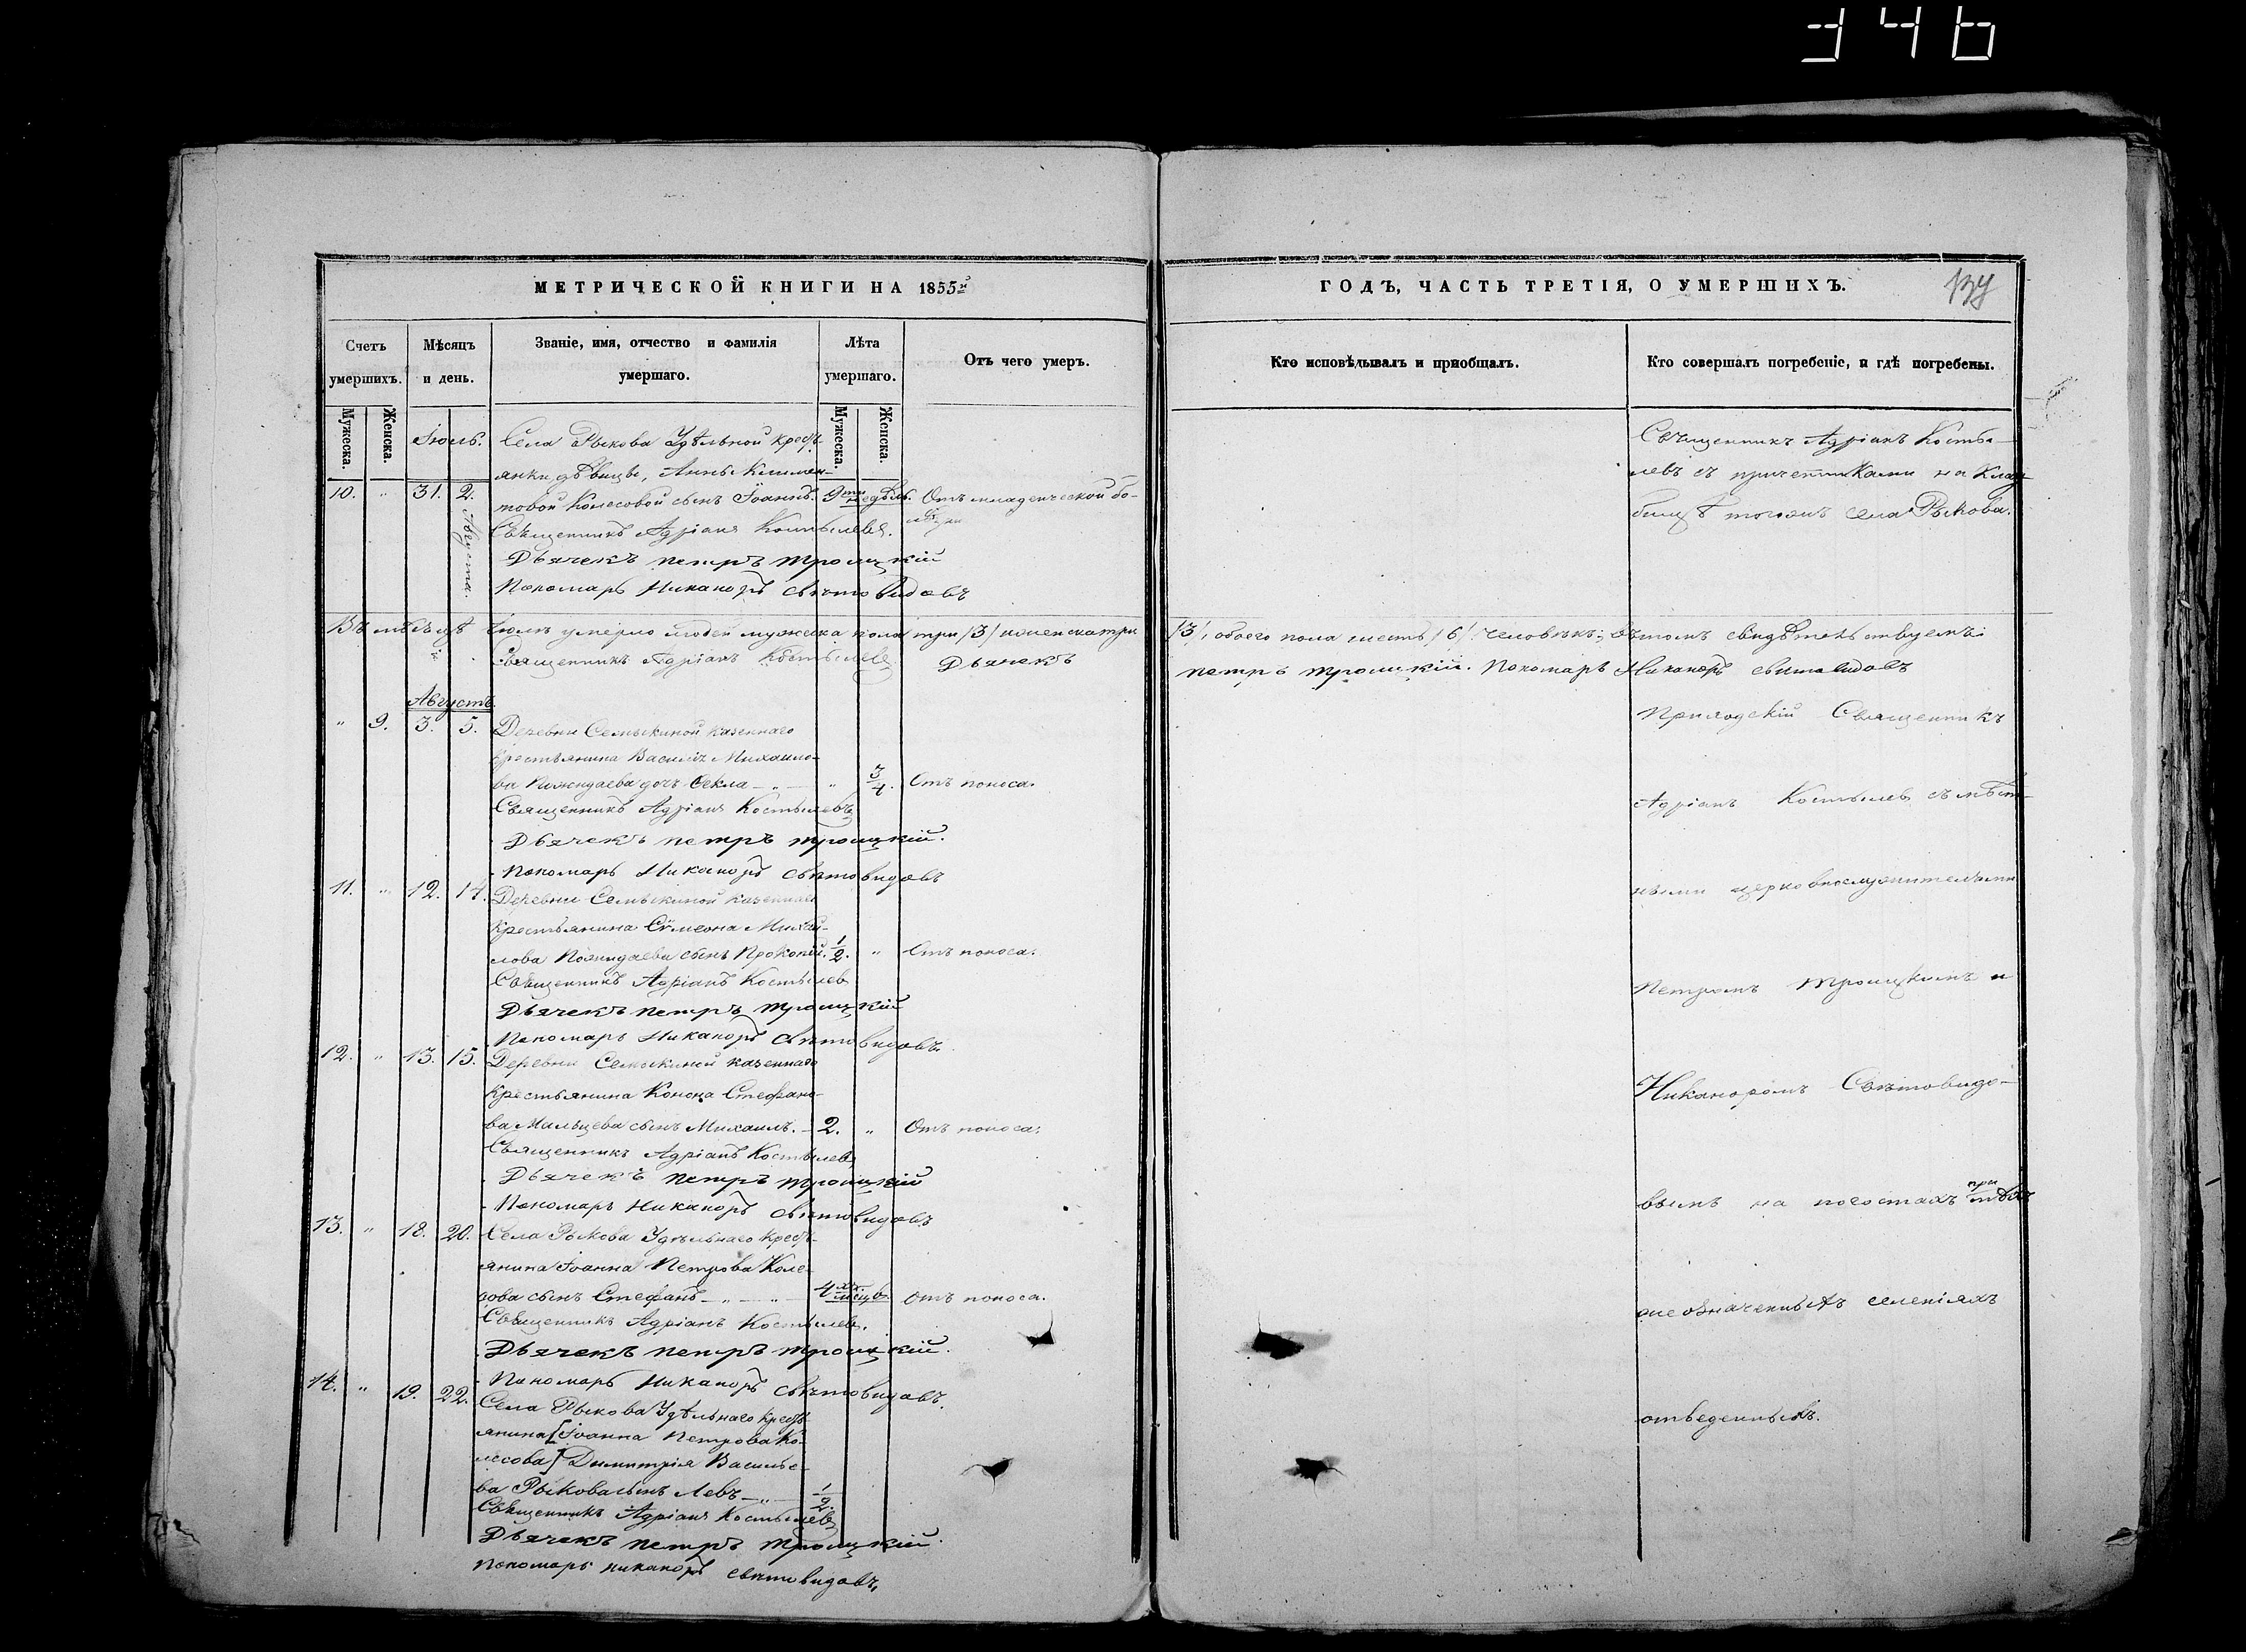 346
МЕТРИЧЕСКОЙ КНИГИ НА 1855й
Счетъ умершихъ.
Мѣсяцъ и день.
Званіе, имя, отчество и фамилія умершаго.
Лѣта умершаго.
Отъ чего умеръ.
Мужеска.
Женска.
Мужеска.
Женска.
Іюль.
Села Рыкова Удѣльной крестъ-
янки дѣвицы, Анны Климен-
10. " 31. 2. Августа. товой Колесовой сынъ Іоаннъ. 9ти недѣль. Отъ младенческой бо-
лѣзни
Священникъ Адріанъ Костылевъ.
Дьячекъ петръ троицкій
Пономарь Никаноръ свѣтовидовъ
Въ мѣсяцѣ Іюлѣ умерло людей мужеска пола три /3/ и женска три
Священникъ Адріанъ Костылевъ Дьячекъ
Августъ.
" 9. 3. 5. Деревни Семыкиной казеннаго
крестьянина Василія Михаило-
ва дочь Ѳекла " 3/4. Отъ поноса.
Священникъ Адріанъ Костылевъ
Дьячекъ петръ троицкій.
Пономарь Никаноръ свѣтовидовъ
11. " 12. 14. Деревни Семыкиной казеннаго
крестьянина Сѵмеона Михай-
лова сынъ Прокопій. 1/2. " Отъ поноса.
Священникъ Адріанъ Костылевъ
Дьячекъ петръ троицкій
Пономарь Никаноръ свѣтовидовъ.
12. " 13. 15. Деревни Семыкиной казеннаго
крестьянина Конона Стефано-
ва Мальцева сынъ Михаилъ. 2. " Отъ поноса.
Священникъ Адріанъ Костылевъ
Дьячекъ петръ троицкій
Пономарь Никаноръ свѣтовидовъ
13. " 18. 20. Села Рыкова Удѣльнаго крестъ-
янина Іоанна Петрова Коле-
сова сынъ Стефанъ 4хъ мѣсяц. Отъ поноса.
Священникъ Адріанъ Костылевъ.
Дьячекъ петръ троицкій.
Пономарь Никаноръ свѣтовидовъ.
14. " 19. 22. Села Рыкова Удѣльнаго крестъ-
янина [Іоанна Петрова Ко-
лесова] Димитрія Василье-
ва Рыкова сынъ Левъ 1/2.
Священникъ Адріанъ Костылевъ
Дьячекъ петръ троицкій.
Пономарь никаноръ свѣтовидовъ,
ГОДЪ, ЧАСТЬ ТРЕТІЯ, О УМЕРШИХЪ.
Кто исповѣдывалъ и пріобщалъ.
Кто совершалъ погребеніе, и гдѣ погребены.
Священникъ Адріанъ Косты-
левъ съ причетниками на клад-
бищѣ тогожъ села Рыкова.
/3/, обоего пола шесть /6/ человѣкъ; вѣтомъ свидѣтельствуемъ:
петръ троицкій. Пономарь Никаноръ свѣтовидовъ
Приходскій Священникъ
Адріанъ Костылевъ съ мѣст-
ными церковнослужителями
Петромъ Троицкимъ и
Никаноромъ Свѣтовидо-
вымъ на погостахъ при тѣхъ
же означенныхъ селеніяхъ
отведенныхъ.